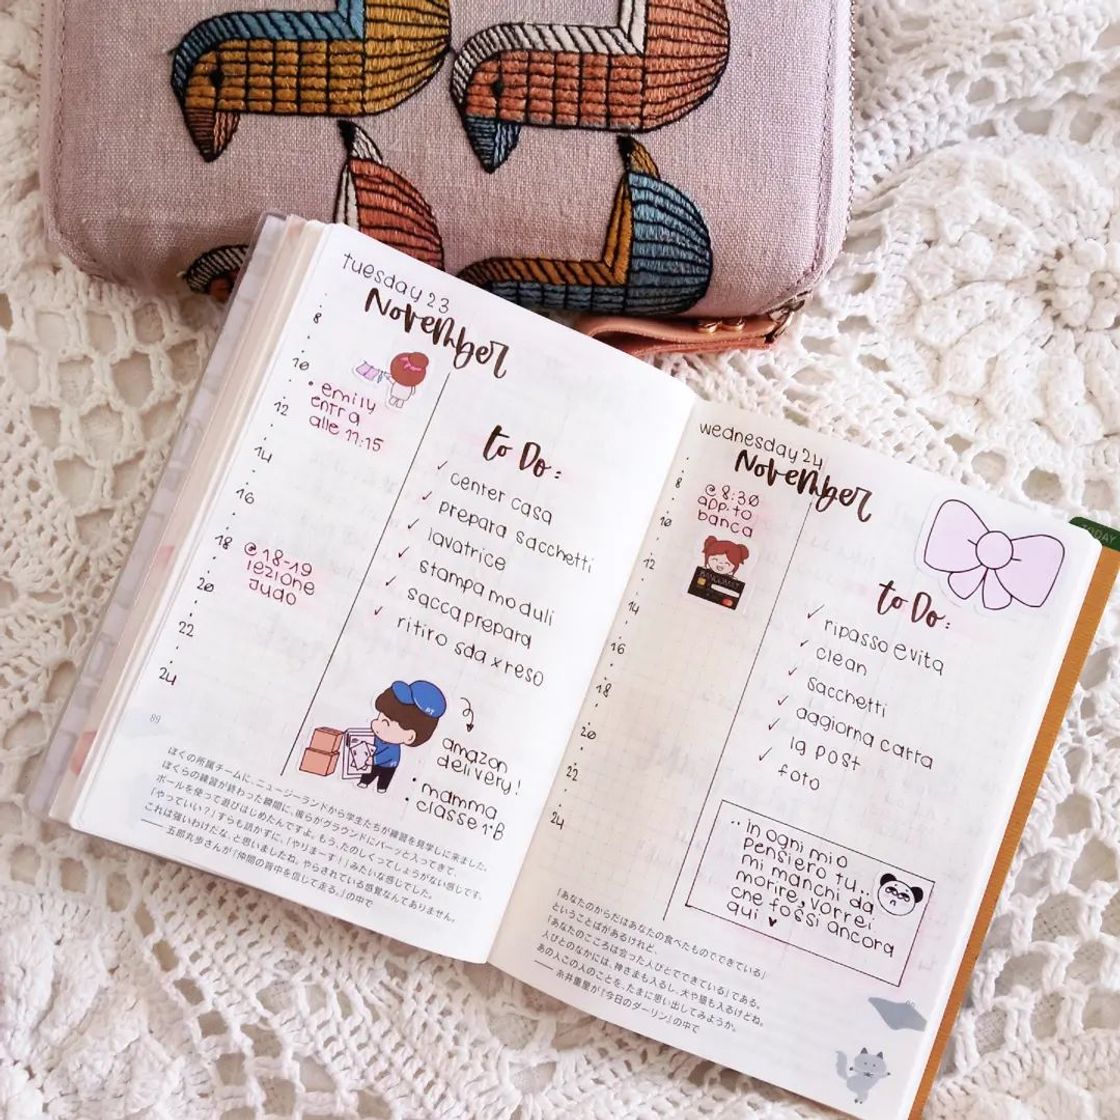 tuesday 23
November
8
10
12
14
16
18
20
22
24
• emily
entra
alle 11:15
@ 18-19
lezione
Judo
to Do:
✓ center casa
✓ prepara sacchetti
✓ lavatrice
✓ stampa moduli
✓ sacca preparq
✓ ritiro sda x reso
amazon
• delivery!
• mamma
classe 1°B
89
ぼくの所属チームに、ニュージーランドから学生たちが練習を見学しに来ました。
ぼくらの練習が終わった瞬間に、彼らがグラウンドにバーッと入ってきて、
ボールを使って遊びはじめたんですよ。もう、たのしくってしょうがない感じです。
「やっていい?」すらも訊かずに、「やりまーす!」みたいな感じでした。
これは強いわけだな、と思いましたね。やらされている感覚なんてありません。
――五郎丸歩さんが『仲間の背中を信じて走る。』の中で
wednesday 24
November
8
10
12
14
16
18
20
22
24
@ 8:30
app.to
banca
BANCOMAT
to Do:
✓ ripasso evita
✓ clean
✓ sacchetti
✓ aggiorna carta
✓ ig post
✓ foto
TODAY
.. in ogni mio
pensiero tu..
mi manchi da
morire, vorrei
che fossi ancora
qui ♥
「あなたのからだはあなたの食べたものでできている」
ということばがあるけれど、
「あなたのこころは会った人びとでできている」である。
人びとのなかには、神さまも入るし、犬や猫も入るけどね。
あの人この人のことを、たまに思い出してみようか。
――糸井重里が『今日のダーリン』の中で